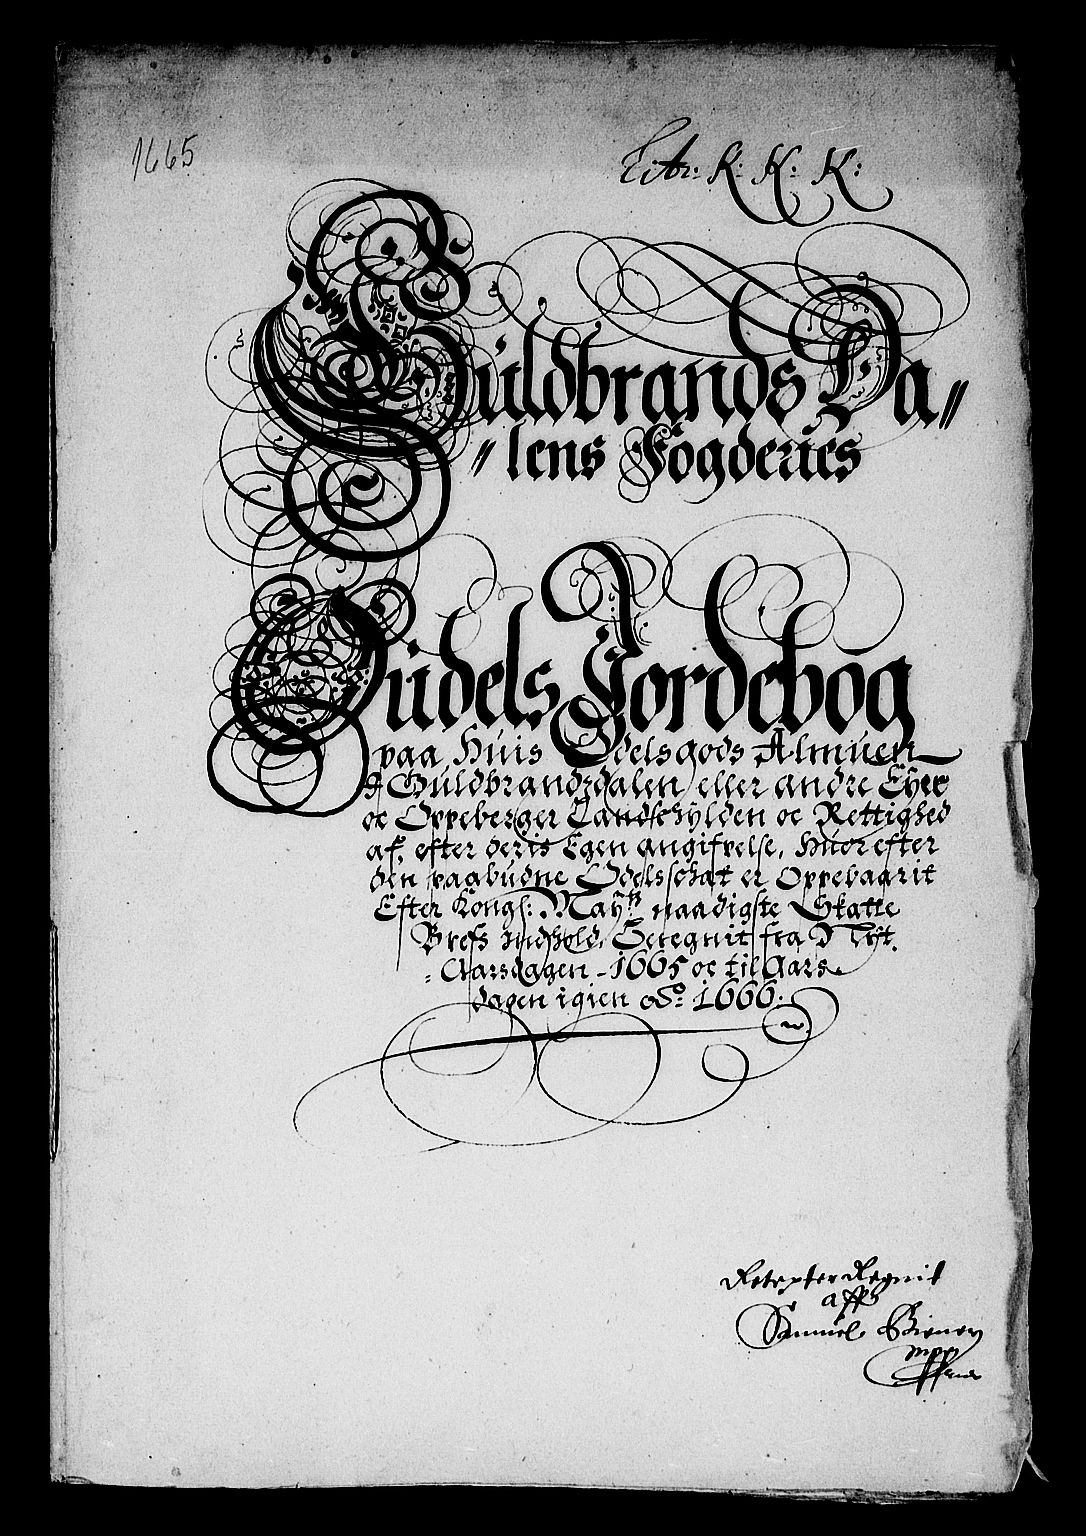 1665
Litr: K: K: K:
Guldbrands Da〃
〃lens Fögderies
Oüdels Jordebog
paa Huis Odelsgods Almuen
I Guldbrandsdalen eller andre Eyere
oc Oppeberger Landschylden oc Rettighed
af, efter deris Egen angifvelse, Huorefter
den paabudne Odelsschat er Oppebaarit
Efter Kongl: Maytz naadigste Skatte
Brefs Indhold, Beregnit fra
Aarsdagen 1665 oc til Aars
dagen igien Ao: 1666.
Retexter Regnit
aff
Samuel
mpp